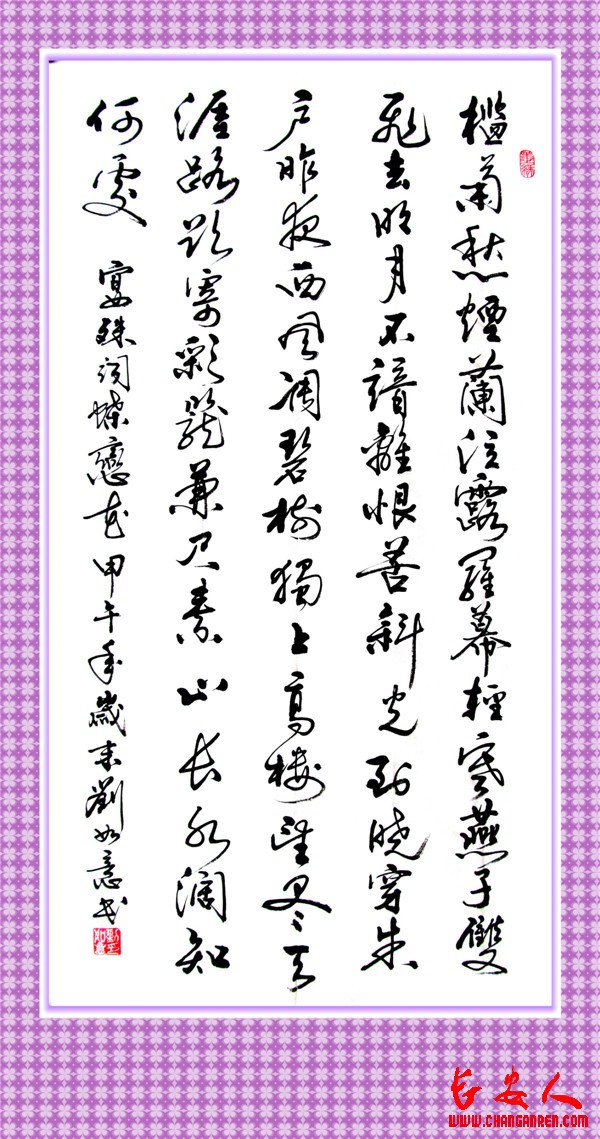 檻菊愁煙蘭泣露羅幕輕寒燕子雙
飛去明月不諳離恨苦斜光到曉穿朱
户昨夜西風凋碧樹獨上高樓望尽天
涯路欲寄彩箋兼尺素山长水濶知
何處 宴殊词蝶戀花甲午年歲末劉如意书
长安人
WWW.CHANGANREN.COM